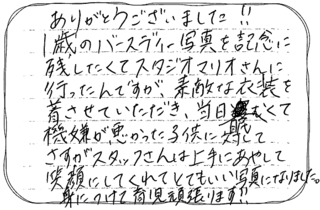 ありがとうございました!!
1歳のバースディー写真を記念に
残したくてスタジオマリオさんに
行ったんですが、素敵な衣装を
着させていただき、当日眠くて
機嫌が悪かった子供に対して
さすがスタッフさんは上手にあやして
笑顔にしてくれてとてもいい写真になりました。
身につけて育児頑張ります!!